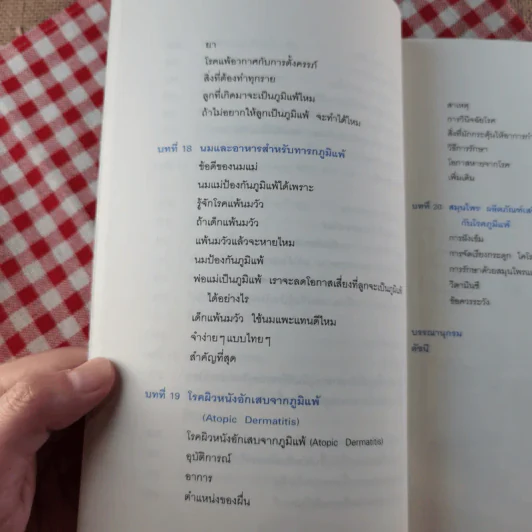 ยา
โรคแพ้อากาศกับการตั้งครรภ์
สิ่งที่ต้องทำทุกราย
ลูกที่เกิดมาจะเป็นภูมิแพ้ไหม
ถ้าไม่อยากให้ลูกเป็นภูมิแพ้ จะทำได้ไหม
บทที่ 18 นมและอาหารสำหรับทารกภูมิแพ้
ข้อดีของนมแม่
นมแม่ป้องกันภูมิแพ้ได้เพราะ
รู้จักโรคแพ้นมวัว
ถ้าเด็กแพ้นมวัว
แพ้นมวัวแล้วจะหายไหม
นมป้องกันภูมิแพ้
พ่อแม่เป็นภูมิแพ้ เราจะลดโอกาสเสี่ยงที่ลูกจะเป็นภูมิแพ้
ได้อย่างไร
เด็กแพ้นมวัว ใช้นมแพะแทนดีไหม
จำง่ายๆ แบบไทยๆ
สำคัญที่สุด
บทที่ 19 โรคผิวหนังอักเสบจากภูมิแพ้
(Atopic Dermatitis)
โรคผิวหนังอักเสบจากภูมิแพ้ (Atopic Dermatitis)
อุบัติการณ์
อาการ
ตำแหน่งของผื่น
สาเหตุ
การวินิจฉัยโรค
สิ่งที่มักกระตุ้นให้อาการกำ
วิธีการรักษา
โอกาสหายจากโรค
เพิ่มเติม
สมุนไพร ผลิตภัณฑ์เส
กับโรคภูมิแพ้
การฝังเข็ม
การจัดเรียงกระดูก
การรักษาด้วยสมุนไพร
วิตามินซี
ข้อควรระวัง
บรรณานุกรม
ดัชนี